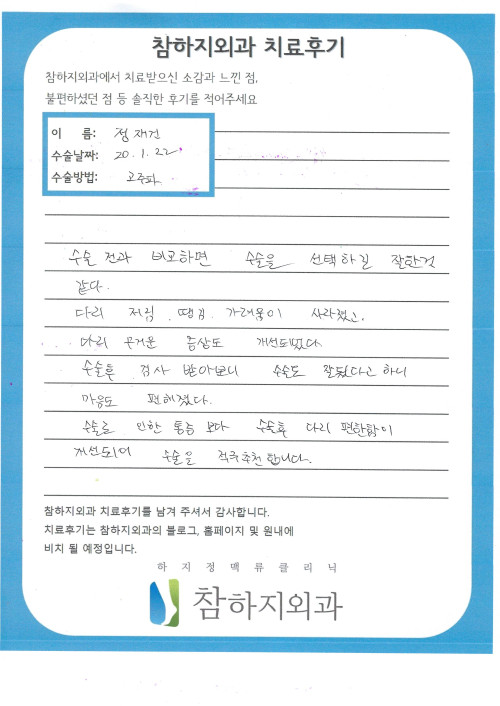 참하지외과 치료후기
참하지외과에서 치료받으신 소감과 느낀 점,
불편하셨던 점 등 솔직한 후기를 적어주세요
이 름: 정재건
수술날짜: 20.1.22
수술방법: 고주파
수술 전과 비교하면 수술을 선택하길 잘한것
같다.
다리 저림, 땡김, 가려움이 사라졌고.
다리 무거운 증상도 개선되었다
수술후 검사 받아보니 수술도 잘됬다고 하니
마음도 편해졌다.
수술로 인한 통증 보다 수술후 다리 편안함이
개선되어 수술을 적극추천합니다.
참하지외과 치료후기를 남겨 주셔서 감사합니다.
치료후기는 참하지외과의 블로그, 홈페이지 및 원내에
비치 될 예정입니다.
하지정맥류클리닉
참하지외과